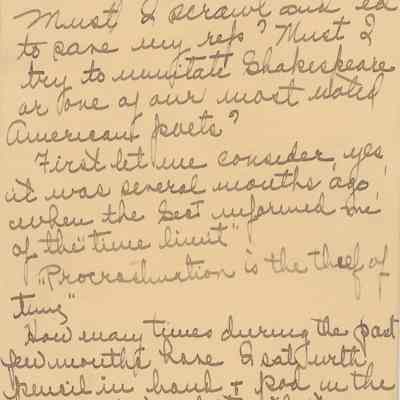 Must I scrawl and
to save my rep? Must I
try to immitate Shakespeare
or one of our most noted
American poets?
First let me consider, yes
it was several months ago,
when the Sect informed me
of the "time limit"
"Procrastination is the thief of
time"
How many times during the past
few months have I sat with
pencil in hand + pad in the